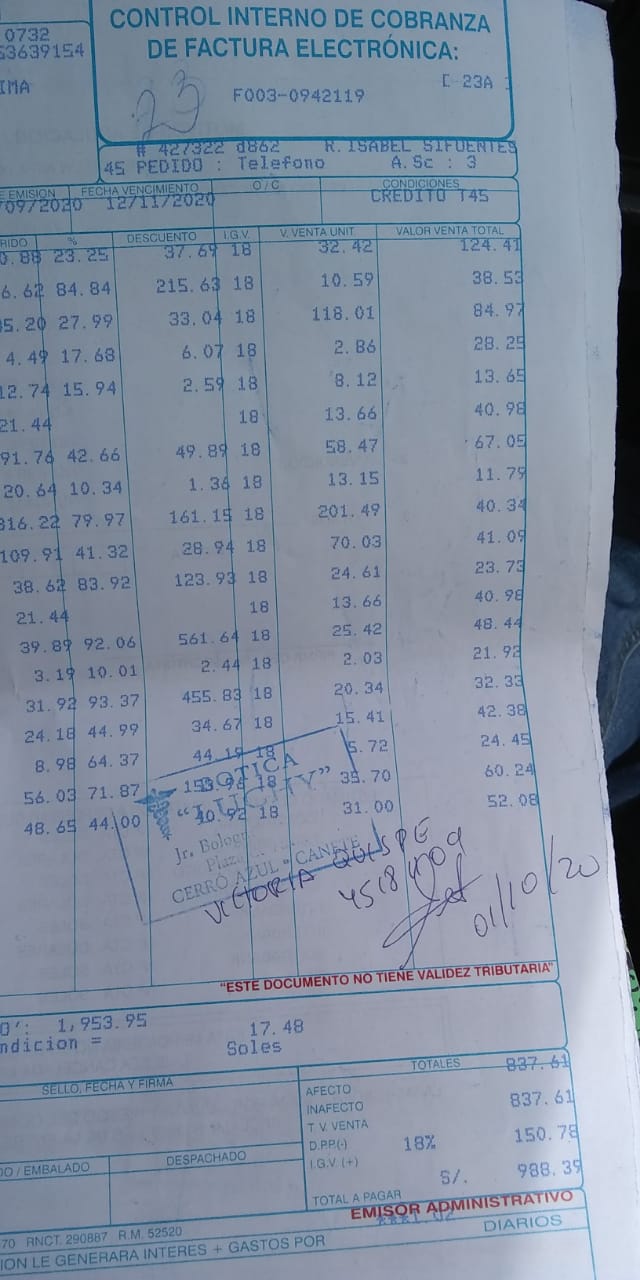 0732
53639154
IMA
CONTROL INTERNO DE COBRANZA
DE FACTURA ELECTRÓNICA:
[ 23A ]
F003-0942119
23
# 427322 d862 R. ISABEL SIFUENTES
45 PEDIDO : Telefono A.Sc : 3
E EMISION FECHA VENCIMIENTO O / C CONDICIONES
/09/2020 12/11/2020 CREDITO T45
RIDO % DESCUENTO I.G.V. V. VENTA UNIT VALOR VENTA TOTAL
0.88 23.25 37.69 18 32.42 124.41
6.62 84.84 215.63 18 10.59 38.53
05.20 27.99 33.04 18 118.01 84.97
4.49 17.68 6.07 18 2.86 28.25
12.74 15.94 2.59 18 8.12 13.65
21.44 18 13.66 40.98
91.76 42.66 49.89 18 58.47 67.05
20.64 10.34 1.36 18 13.15 11.79
816.22 79.97 161.15 18 201.49 40.34
109.91 41.32 28.94 18 70.03 41.09
38.62 83.92 123.93 18 24.61 23.73
21.44 18 13.66 40.98
39.89 92.06 561.64 18 25.42 48.44
3.19 10.01 2.44 18 2.03 21.92
31.92 93.37 455.83 18 20.34 32.33
24.18 44.99 34.67 18 15.41 42.38
8.98 64.37 44.19 18 5.72 24.45
56.03 71.87 18 35.70 60.24
48.65 44.00 40.92 18 31.00 52.08
BOTICA
"LUCHY"
Jr. Bolog
Plaz
CERRO AZUL - CAÑETE
VICTORIA QUISPE
01/10/20
"ESTE DOCUMENTO NO TIENE VALIDEZ TRIBUTARIA"
O': 1,953.95 17.48
ndicion = Soles
SELLO, FECHA Y FIRMA
TOTALES
AFECTO 837.61
INAFECTO
T. V. VENTA 837.61
D.P.P.(-)
I.G.V. (+) 18% 150.78
TOTAL A PAGAR S/. 988.39
DO / EMBALADO DESPACHADO
EMISOR ADMINISTRATIVO
70 RNCT. 290887 R.M. 52520
ION LE GENERARA INTERES + GASTOS POR DIARIOS